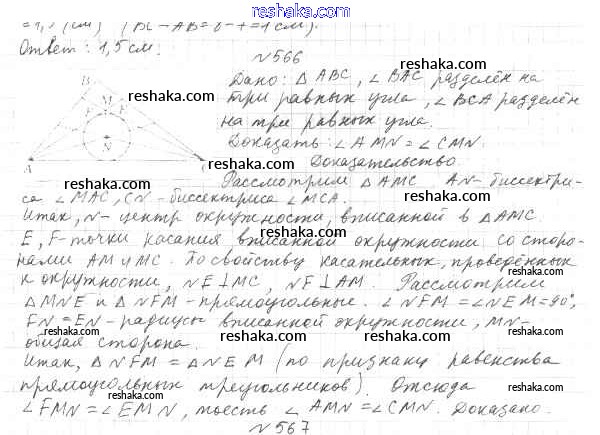 reshaka.com
=1,7 (см) (BC-AB=8-7=1см).
Ответ: 1,5 см.
№566
Дано: △ABC, ∠BAC разделён на
три равных угла, ∠BCA разделён
на три равных угла.
Доказать: ∠AMN=∠CMN.
Доказательство
Рассмотрим △AMC AN-биссектри-
са ∠MAC, CN-биссектриса ∠MCA.
Итак, N-центр окружности, вписанной в △AMC.
E, F-точки касания вписанной окружности со сторо-
нами AM и MC. По свойству касательных, проведённых
к окружности, NE⊥MC, NF⊥AM. Рассмотрим
△MNE и △NFM-прямоугольные. ∠NFM=∠NEM=90°,
FN=EN-радиусы вписанной окружности, MN-
общая сторона.
Итак, △NFM=△NEM (по признаку равенства
прямоугольных треугольников). Отсюда
∠FMN=∠EMN, тоесть ∠AMN=∠CMN. Доказано.
№567
B
F M E
N
A C
reshaka.com
reshaka.com
reshaka.com
reshaka.com
reshaka.com
reshaka.com
reshaka.com
reshaka.com
reshaka.com
reshaka.com
reshaka.com
reshaka.com
reshaka.com